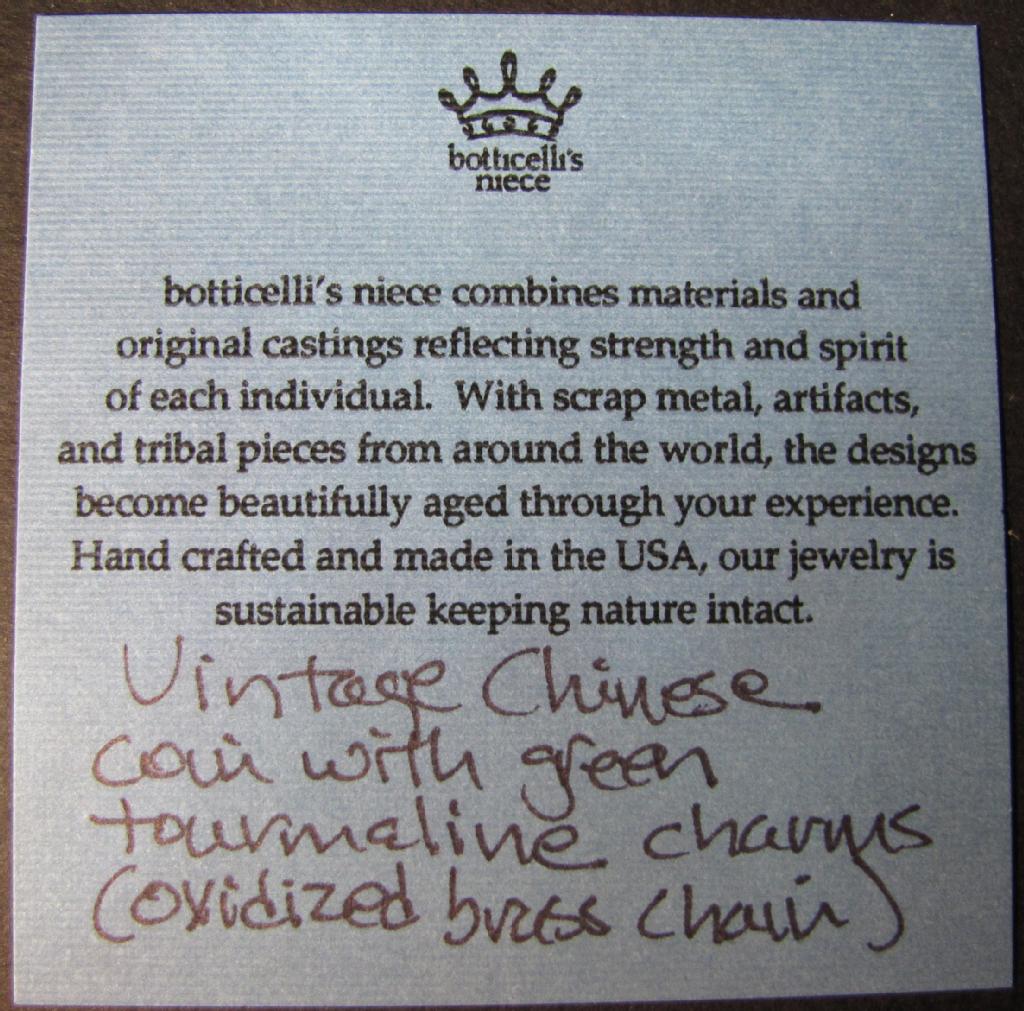 botticelli's
niece
botticelli's niece combines materials and
original castings reflecting strength and spirit
of each individual. With scrap metal, artifacts,
and tribal pieces from around the world, the designs
become beautifully aged through your experience.
Hand crafted and made in the USA, our jewelry is
sustainable keeping nature intact.
Vintage Chinese
coin with green
tourmaline charms
(oxidized brass chain)